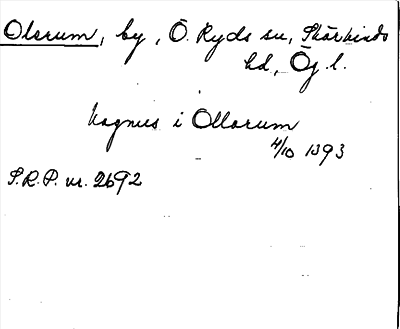 Olsrum, by, Ö. Ryds sn, Skärkinds
hd, Ög. l.
Magnus i Ollorum
4/10 1393
S.R.P. nr. 2692